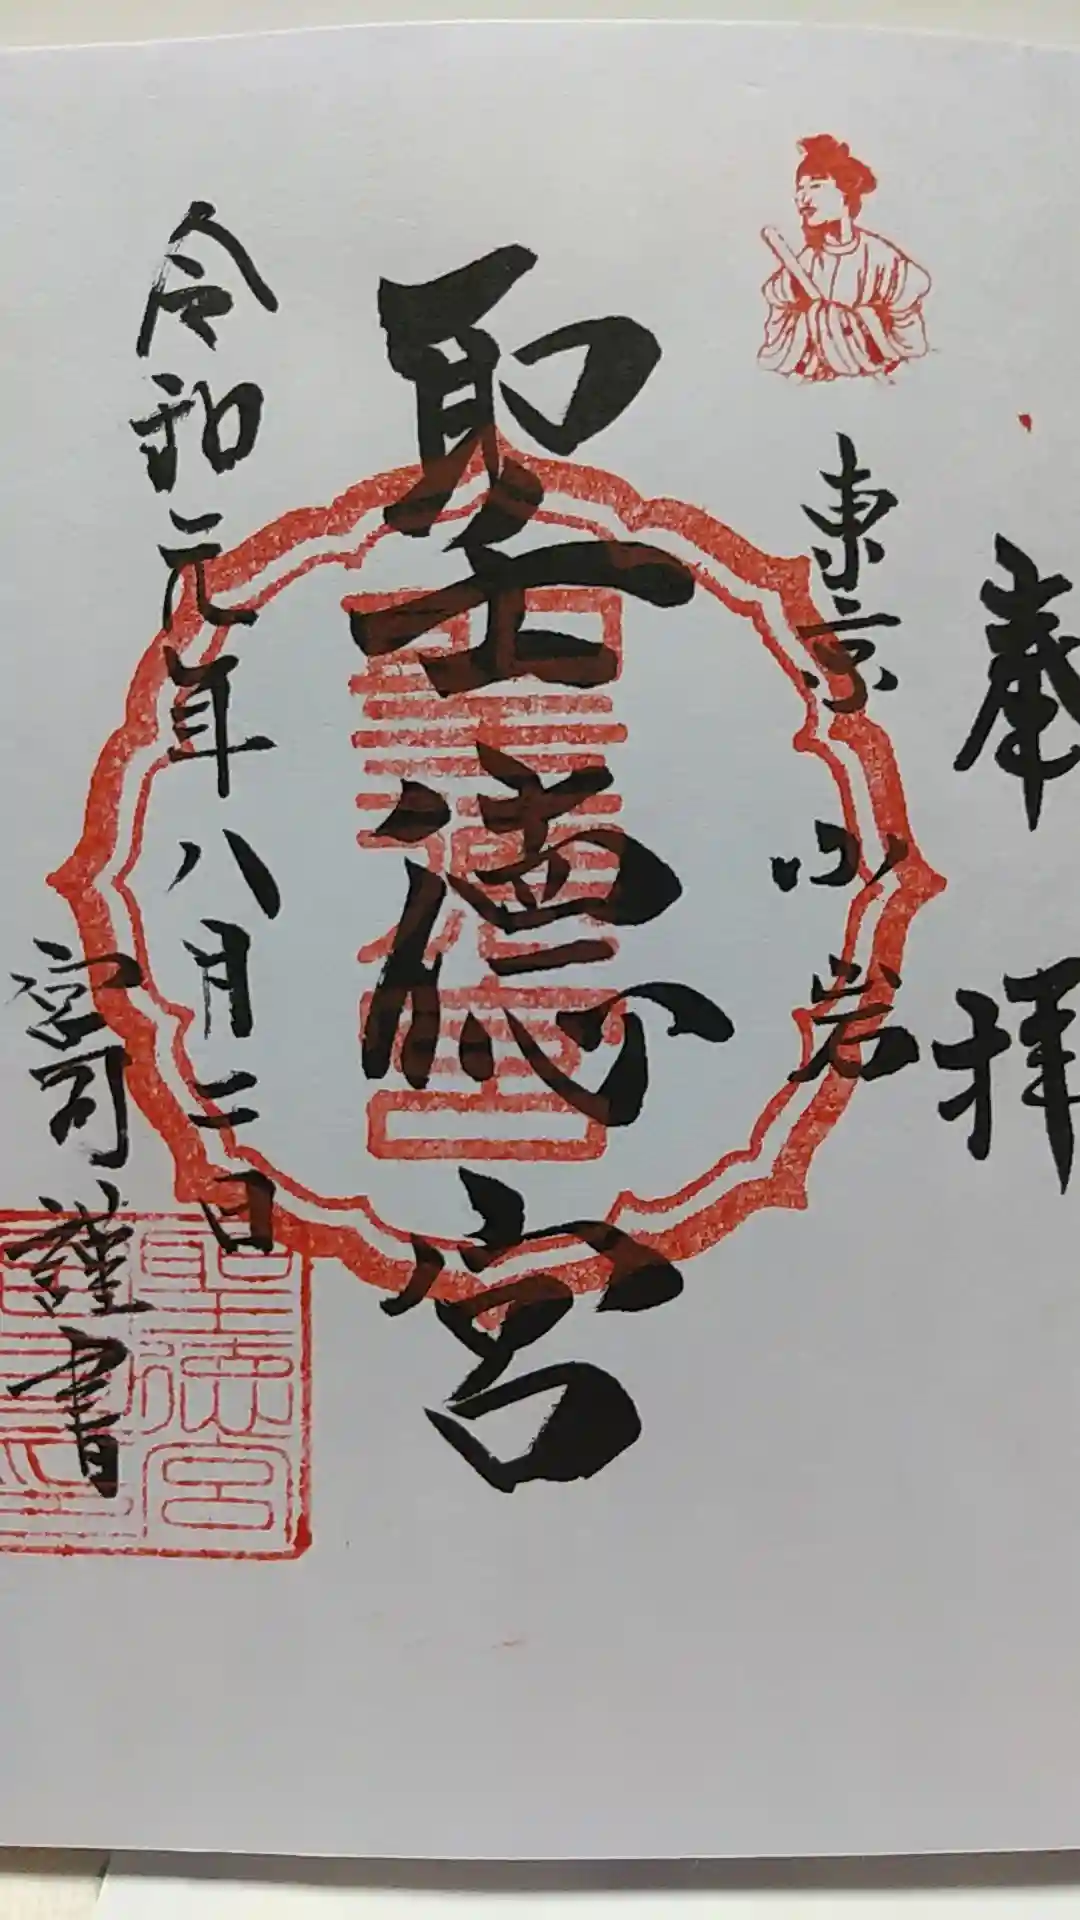 奉拝
東京小岩
聖徳宮
令和元年八月二日
宮司謹書
聖徳宮